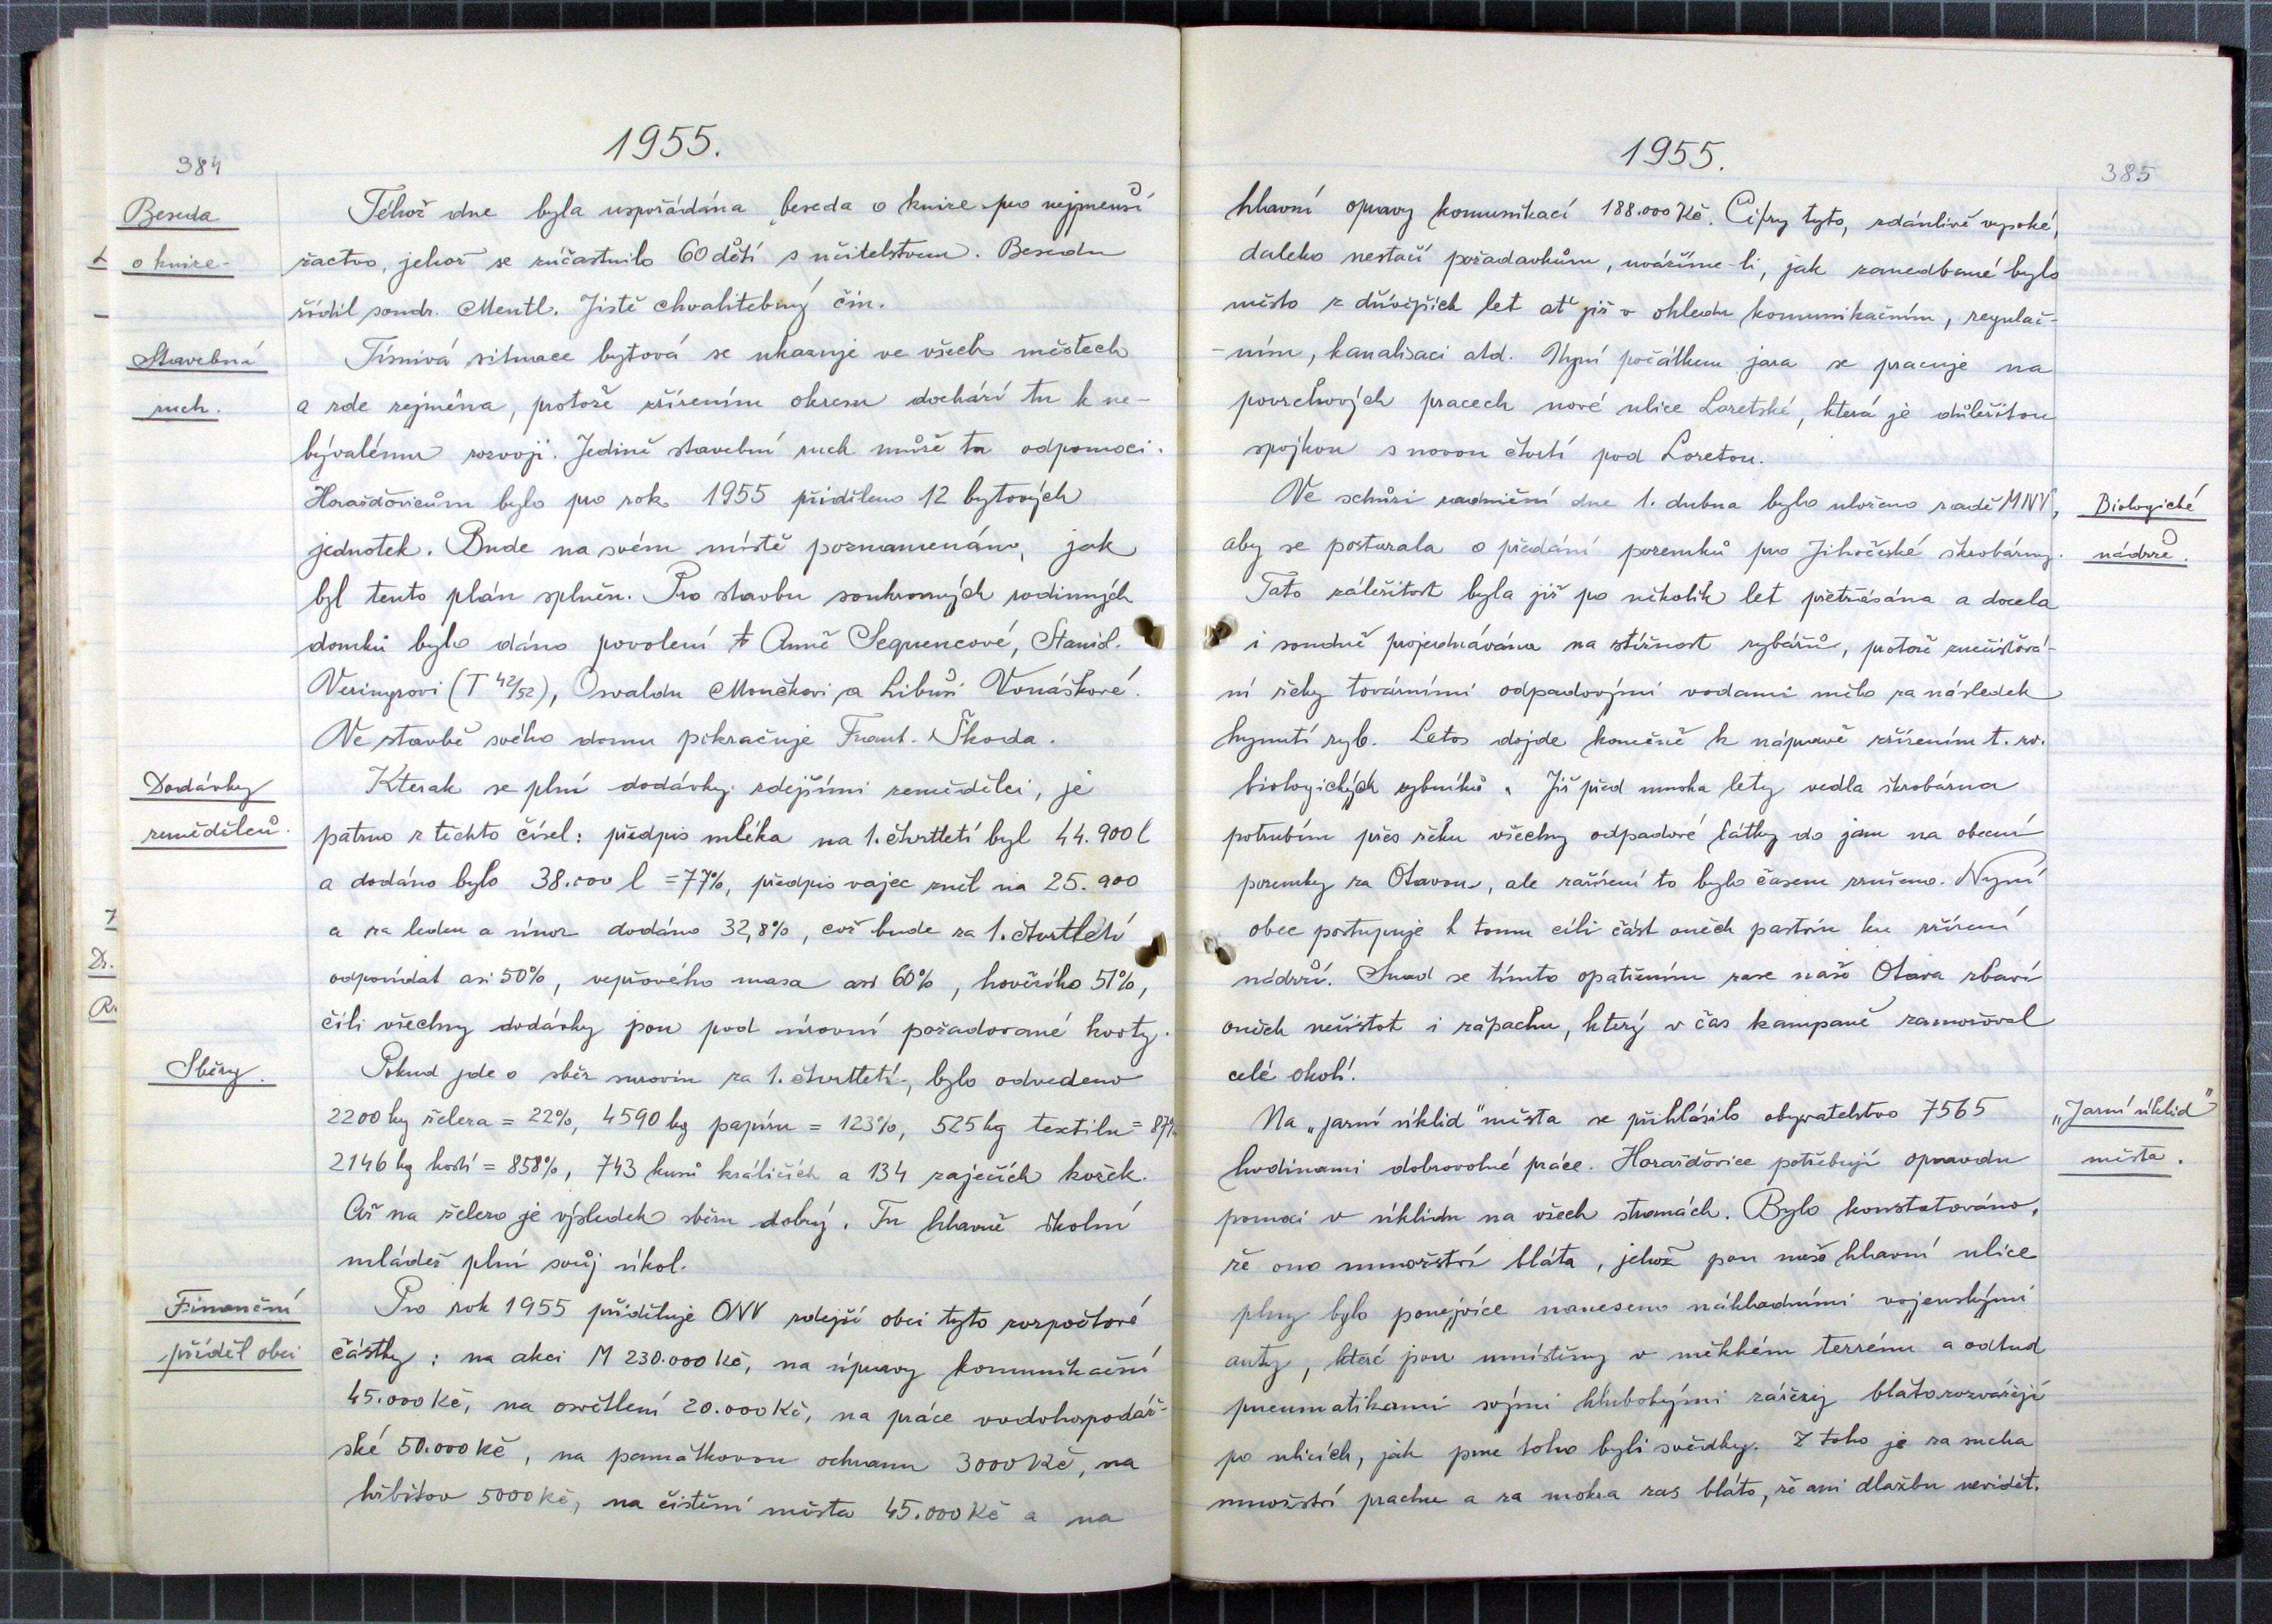 384
1955.
Beseda
o knize.
Téhož dne byla uspořádána beseda o knize pro nejmenší
žactvo, jehož se zúčastnilo 60 dětí s učitelstvem. Besedu
řídil soudr. Mentl. Jistě chvalitebný čin.
Stavební
ruch.
Tísnivá situace bytová se ukazuje ve všech městech
a zde zejména, protože zřízením okresu dochází tu k ne-
bývalému rozvoji. Jedině stavební ruch může tu odpomoci.
Horažďovicům bylo pro rok 1955 přiděleno 12 bytových
jednotek. Bude na svém místě poznamenáno, jak
byl tento plán splněn. Pro stavbu soukromých rodinných
domků bylo dáno povolení Anně Sequencové, Stanisl.
(T 42/52), Osvaldu Moučkovi a Libuši Vonáškové.
Ve stavbě svého domu pokračuje Frant. Škoda.
Dodávky
zemědělců.
Kterak se plní dodávky zdejšími zemědělci, je
patrno z těchto čísel: předpis mléka na 1. čtvrtletí byl 44.900 l
a dodáno bylo 38.000 l = 77%, předpis vajec zněl na 25.900
a za leden a únor dodáno 32,8%, což bude za 1. čtvrtletí
odpovídat asi 50%, vepřového masa asi 60%, hovězího 51%,
čili všechny dodávky jsou pod úrovní požadované kvoty.
Sběry.
Pokud jde o sběr surovin za 1. čtvrtletí, bylo odvedeno
2200 kg železa = 22%, 4590 kg papíru = 123%, 525 kg textilu = 87%
2146 kg kostí = 858%, 743 kusů králičích a 134 zaječích kožek.
Až na železo je výsledek sběru dobrý. Tu hlavně školní
mládež plní svůj úkol.
Finanční
příděl obci
Pro rok 1955 přiděluje ONV zdejší obci tyto rozpočtové
částky: na akci M 230.000 Kč, na úpravy komunikační
45.000 Kč, na osvětlení 20.000 Kč, na práce vodohospodář-
ské 50.000 Kč, na památkovou ochranu 3000 Kč, na
hřbitov 5000 Kč, na čistění města 45.000 Kč a na
1955.
385
hlavní opravy komunikací 188.000 Kč. Cifry tyto, zdánlivě vysoké,
daleko nestačí požadavkům, uvážíme-li, jak zanedbané bylo
město z dřívějších let ať již v ohledu komunikačním, regulač-
-ním, kanalisaci atd. Nyní počátkem jara se pracuje na
povrchových pracech nové ulice Loretské, která je důležitou
spojkou s novou čtvrtí pod Loretou.
Biologické
nádrže.
Ve schůzi radniční dne 1. dubna bylo uloženo radě MNV,
aby se postarala o předání pozemků pro Jihočeské škrobárny.
Tato záležitost byla již po několik let přetřásána a docela
i soudně projednávána na stížnost rybářů, protože znečišťová-
ní řeky továrními odpadovými vodami mělo za následek
hynutí ryb. Letos dojde konečně k nápravě zřízením t. zv.
biologických rybníků. Již před mnoha lety vedla škrobárna
potrubím přes řeku všechny odpadové látky do jam na obecní
pozemky za Otavou, ale zařízení to bylo časem zrušeno. Nyní
obec postupuje k tomu cíli část oněch pastvin ku zřízení
nádrží. Snad se tímto opatřením zase naše Otava zbaví
oněch nečistot i zápachu, který v čas kampaně zamořoval
celé okolí.
„Jarní úklid"
města.
Na „jarní úklid" města se přihlásilo obyvatelstvo 7565
hodinami dobrovolné práce. Horažďovice potřebují opravdu
pomoci v úklidu na všech stranách. Bylo konstatováno,
že ono množství bláta, jehož jsou naše hlavní ulice
plny bylo ponejvíce naneseno nákladními vojenskými
auty, které jsou umístěny v měkkém terrénu a odtud
pneumatikami svými hlubokými zářezy bláto rozvážejí
po ulicích, jak jsme toho byli svědky. Z toho je za sucha
množství prachu a za mokra zas bláto, že ani dlažbu nevidět.